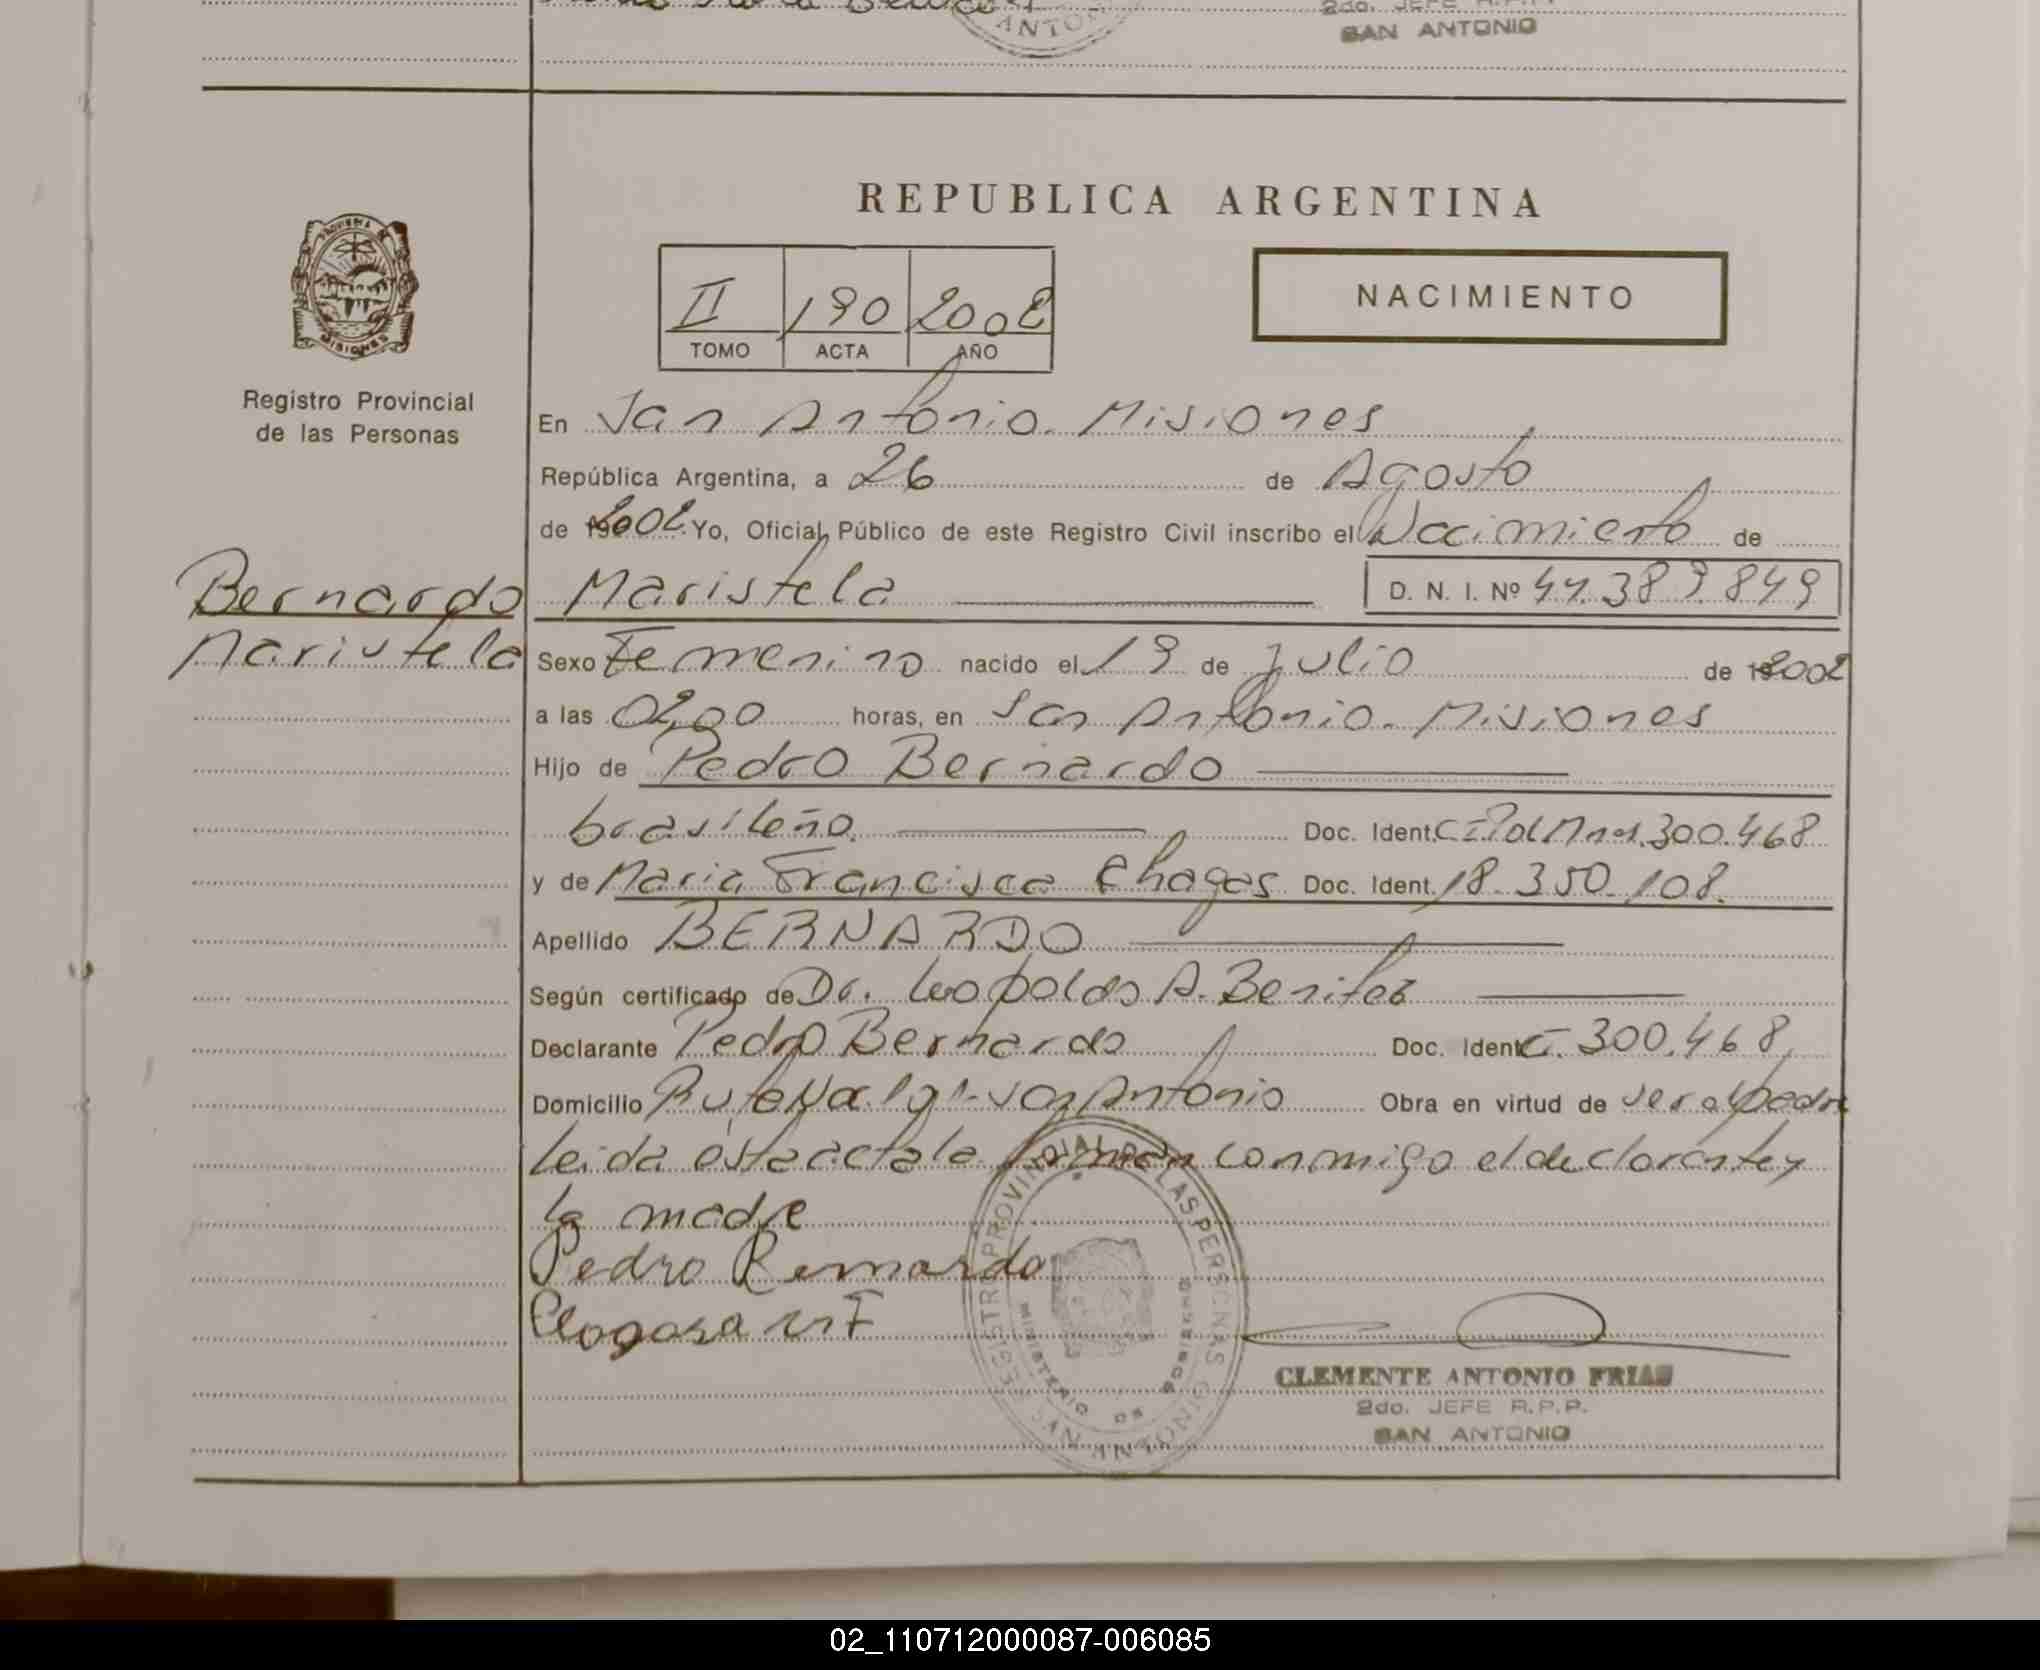 ANTO
2do. JEFE R.P.P.
SAN ANTONIO
REPUBLICA ARGENTINA
PROVINCIA DE
MISIONES
II 190 2002
TOMO ACTA AÑO
NACIMIENTO
Registro Provincial
de las Personas
En San Antonio. Misiones
República Argentina, a 26 de Agosto
de 2002 Yo, Oficial Público de este Registro Civil inscribo el Nacimiento de
Bernardo Maristela D. N. I. Nº 44.389.849
Maristela Sexo Femenino nacido el 19 de Julio de 2002
a las 02,00 horas, en San Antonio. Misiones
Hijo de Pedro Bernardo
brasileño. Doc. Ident. 300.468
y de Maria Francisca Chagas Doc. Ident. 18.350.108.
Apellido BERNARDO
Según certificado de Dr. Leopoldo A. Benitez
Declarante Pedro Bernardo Doc. Ident. 300.468,
Domicilio San Antonio Obra en virtud de ser el padre
leida esta acta la firman conmigo el declarante y
la madre
Pedro Bernardo
REGISTRO PROVINCIAL DE LAS PERSONAS
MINISTERIO DE GOBIERNO
SAN ANTONIO
CLEMENTE ANTONIO FRIAS
2do. JEFE R.P.P.
SAN ANTONIO
02_110712000087-006085